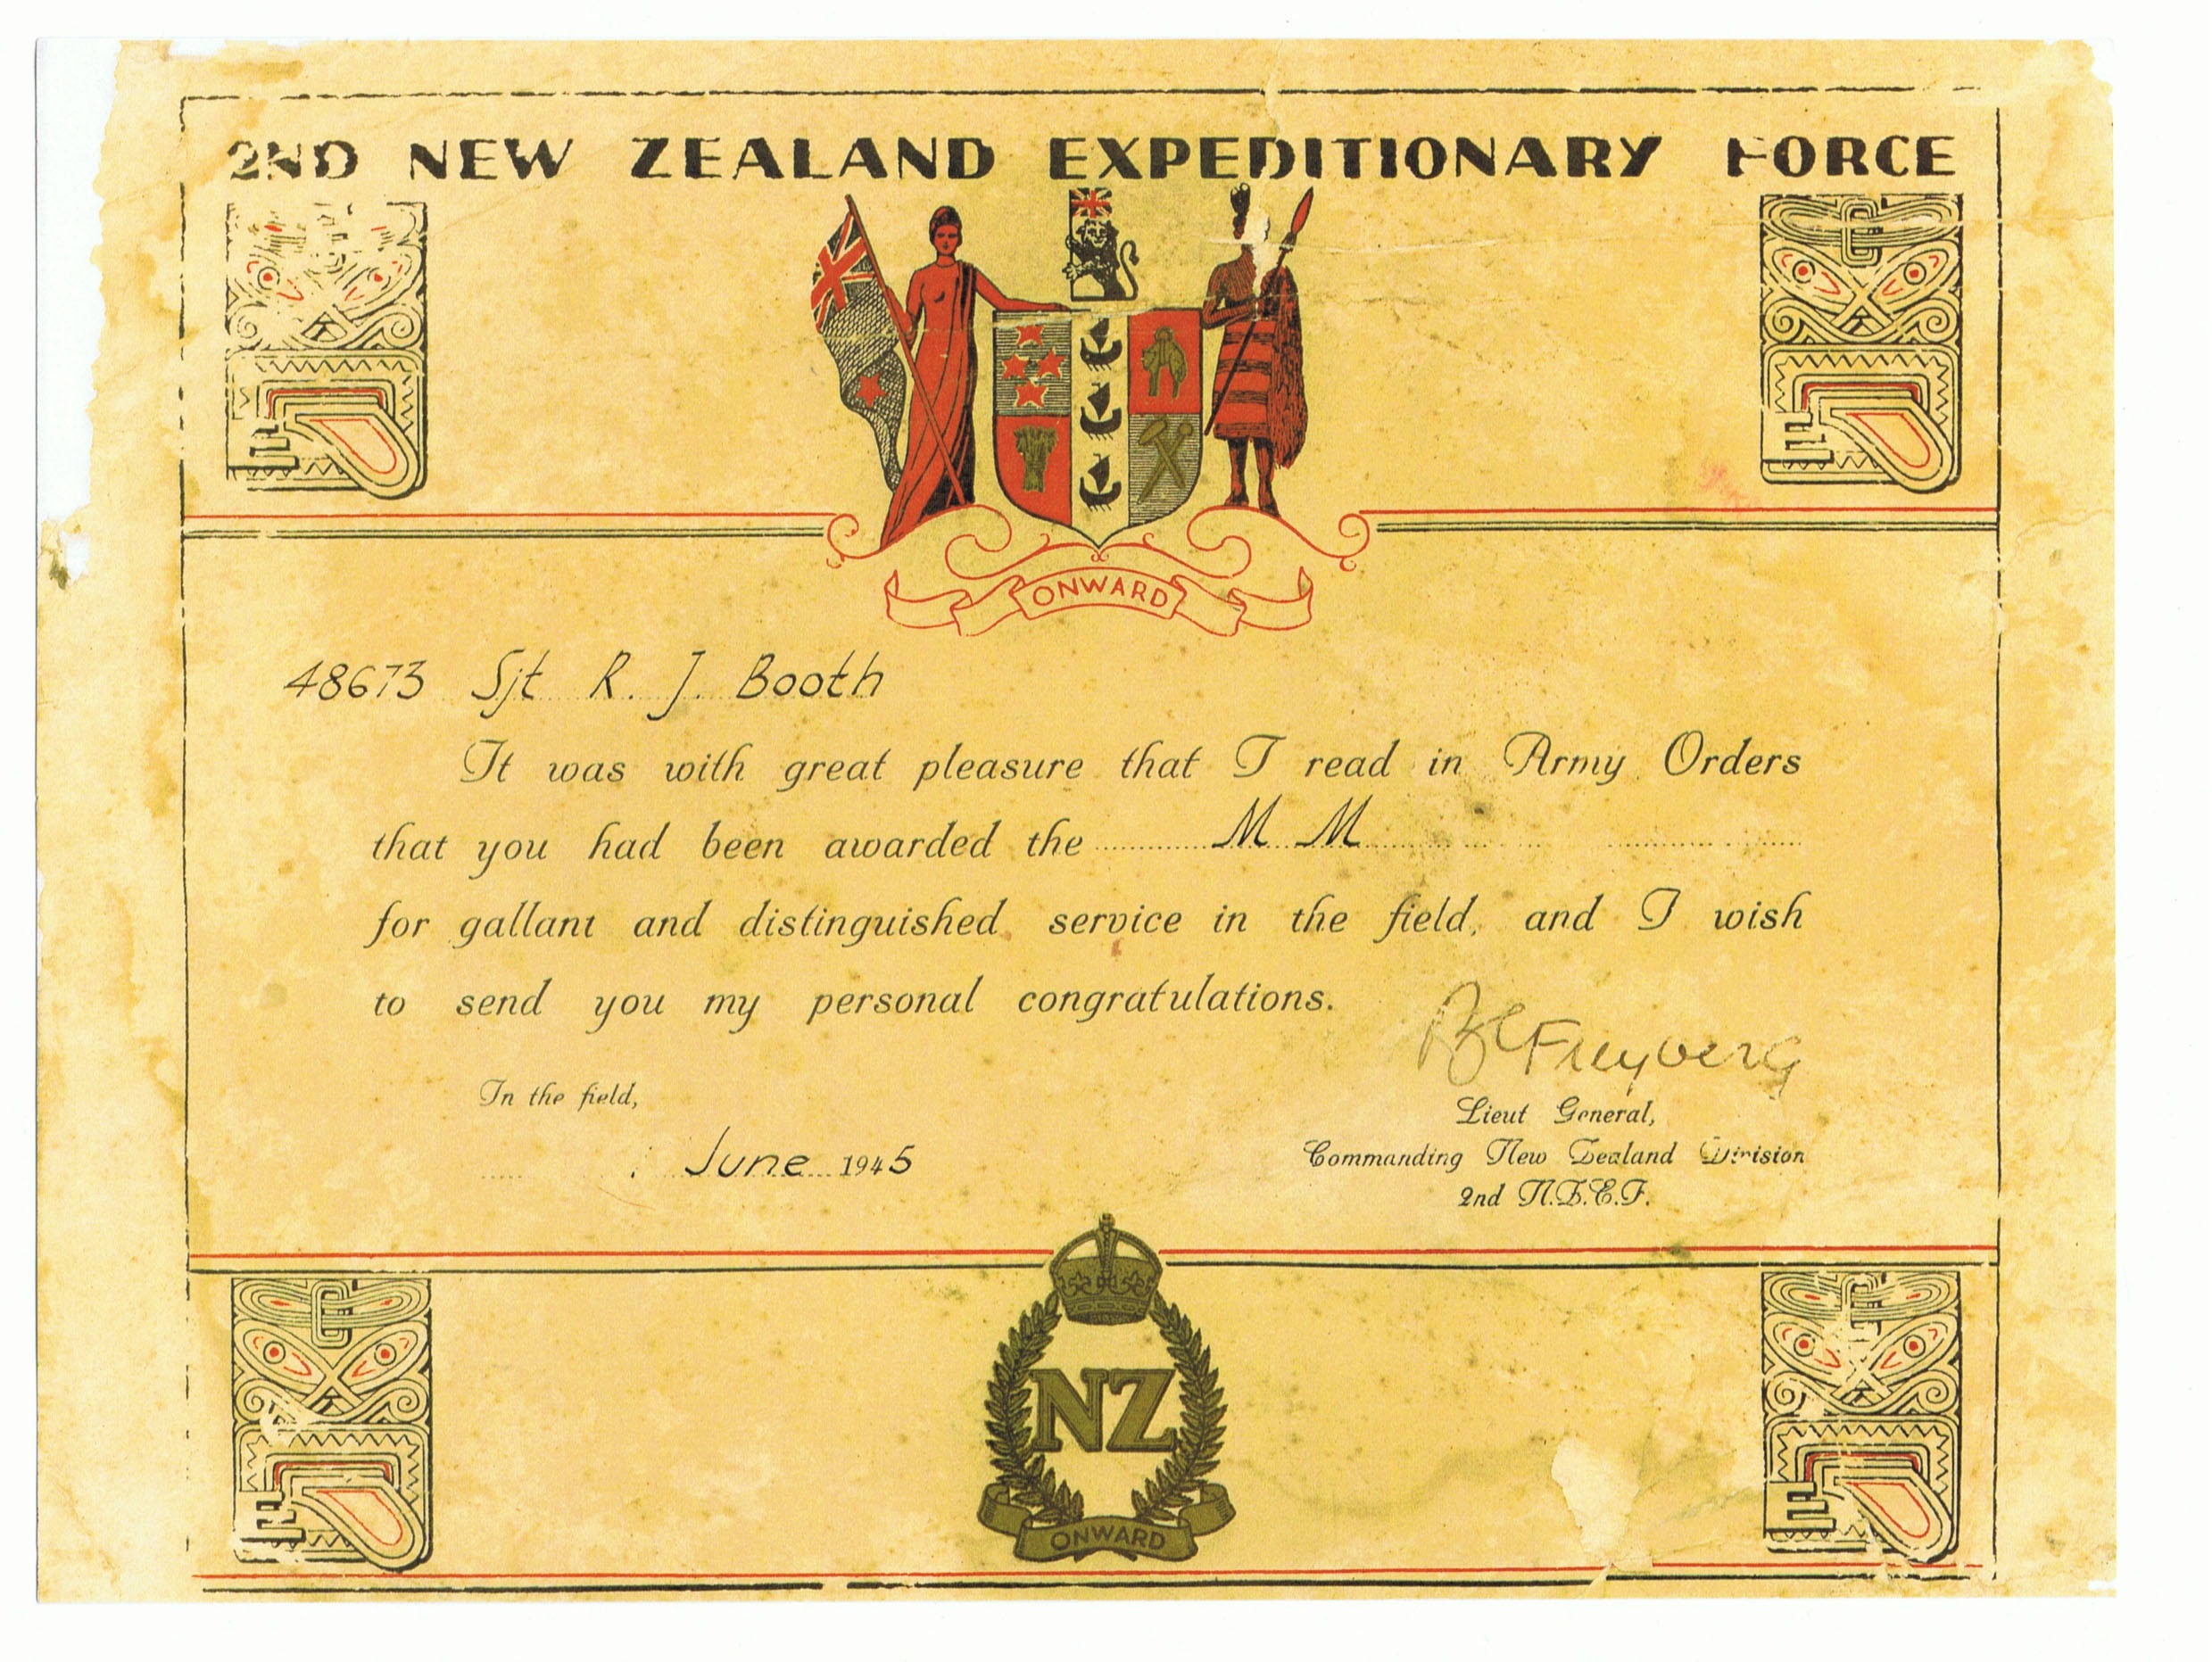 2ND NEW ZEALAND EXPEDITIONARY FORCE
ONWARD
48673 Sjt R. J. Booth
It was with great pleasure that I read in Army Orders
that you had been awarded the M M
for gallant and distinguished service in the field, and I wish
to send you my personal congratulations.
BCFreyberg
In the field,
Lieut General,
June 1945
Commanding New Zealand Division
2nd N.Z.E.F.
NZ
ONWARD